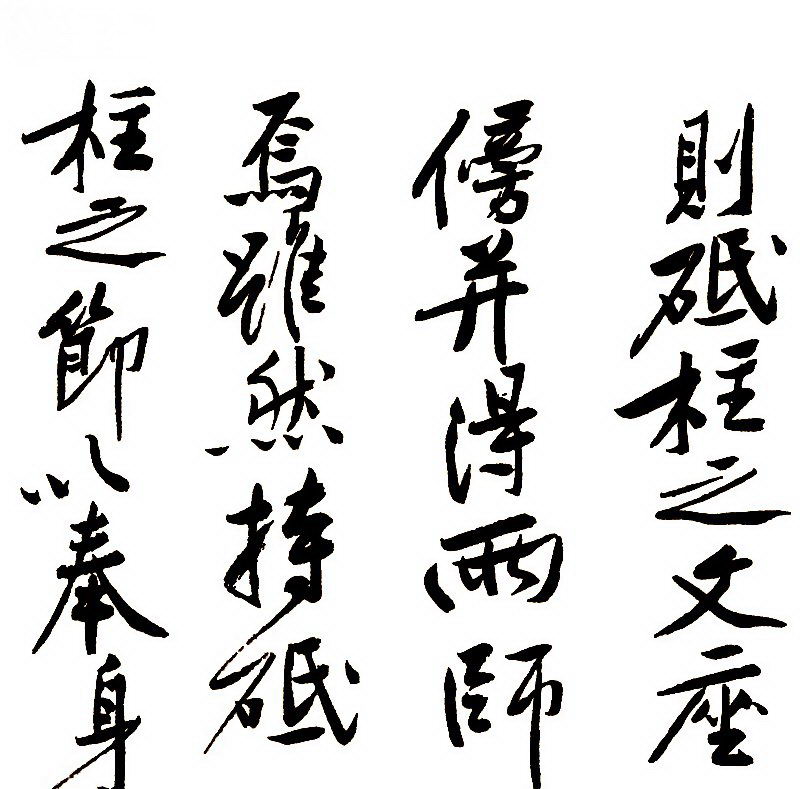 則砥柱之文座
傍并得兩師
焉雖然持砥
柱之節以奉身